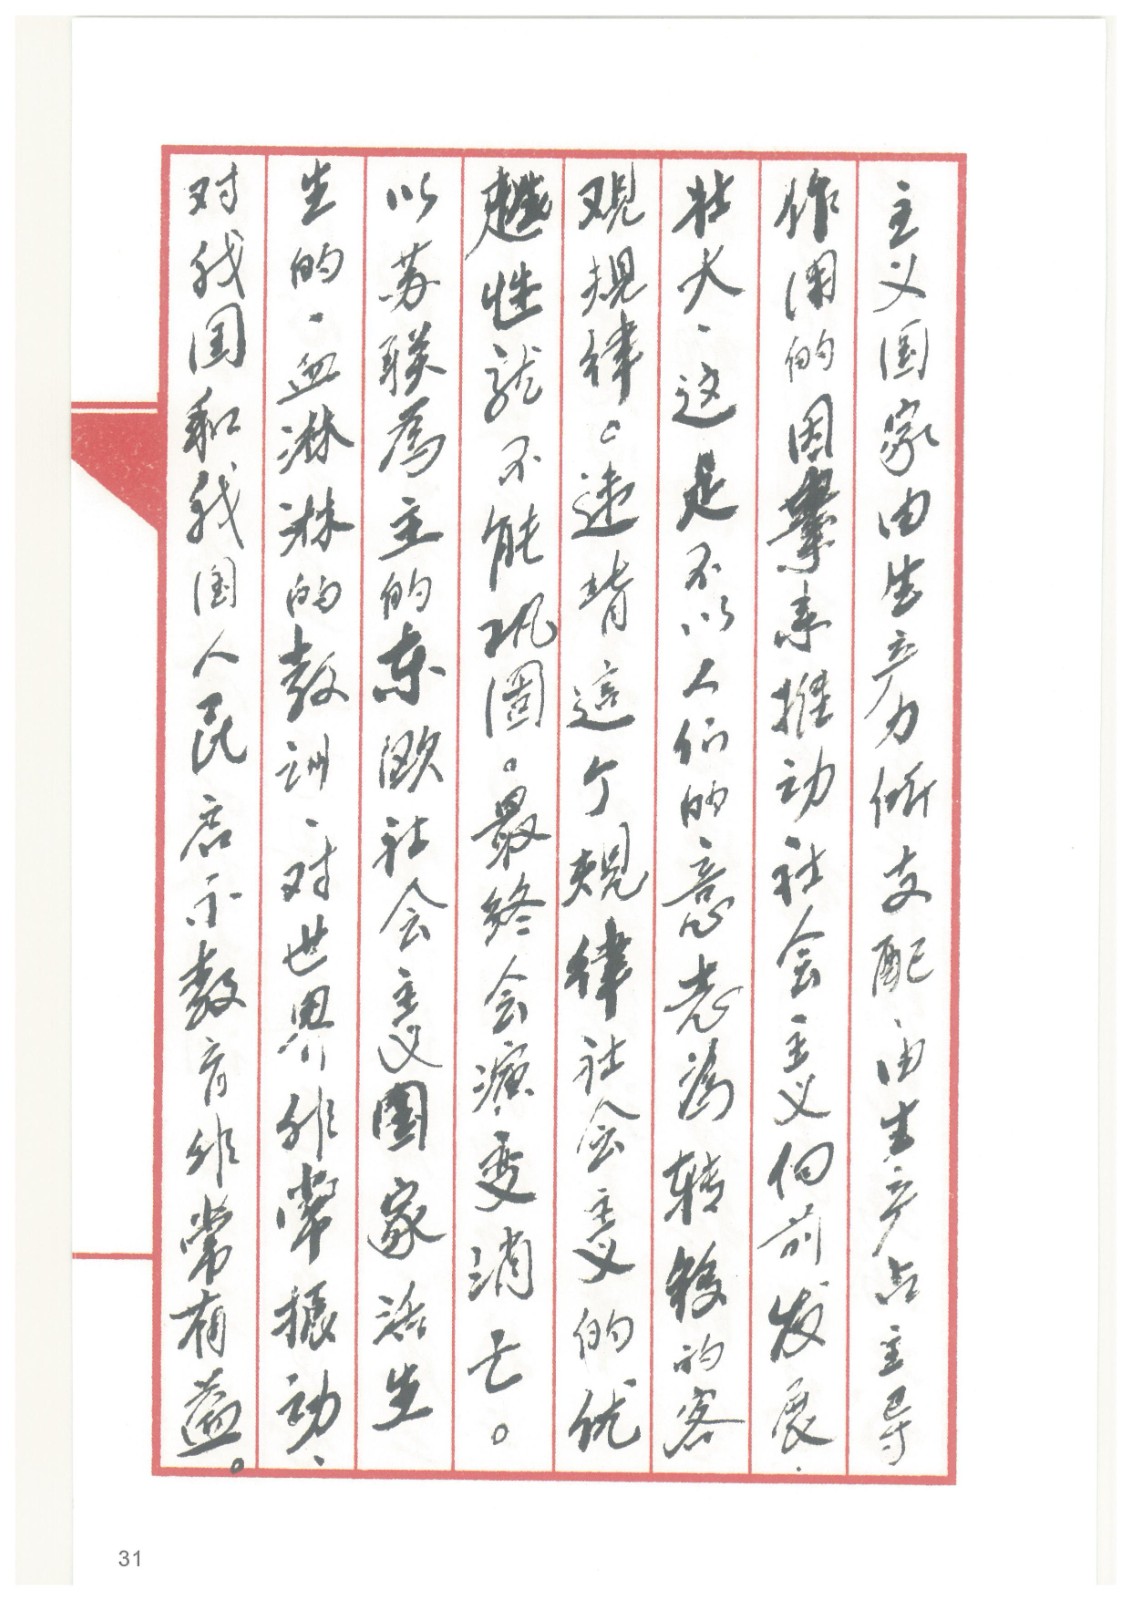 主义国家由生产力所支配由生产占主导
作用的因素推动社会主义向前发展、
壮大、这是不以人们的意志为转移的客
观规律。违背這个规律社会主义的优
越性就不能巩固。最终会演变消亡。
以苏联為主的东欧社会主义国家活生
生的、血淋淋的教训、对世界非常振动、
对我国和我国人民启示教育非常有益。
31